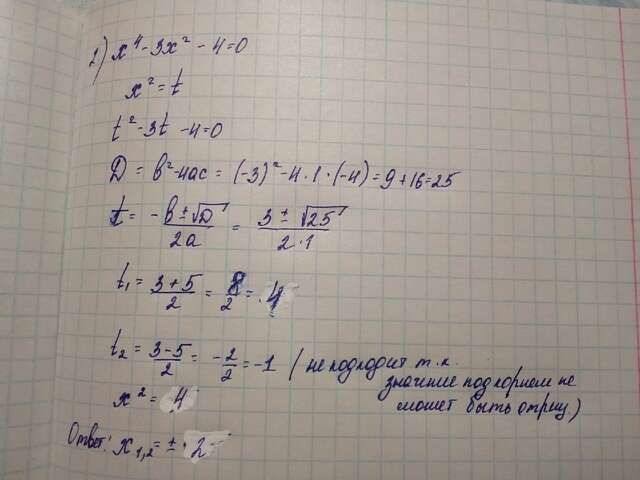 1) x⁴ - 3x² - 4 = 0
x² = t
t² - 3t - 4 = 0
D = b² - 4ac = (-3)² - 4 · 1 · (-4) = 9 + 16 = 25
t = -b ± √D / 2a = 3 ± √25 / 2 · 1
t₁ = 3 + 5 / 2 = 8 / 2 = 4
t₂ = 3 - 5 / 2 = -2 / 2 = -1 (не подходит т.к.
значение под корнем не
может быть отриц.)
x² = 4
Ответ: x₁,₂ = ± 2